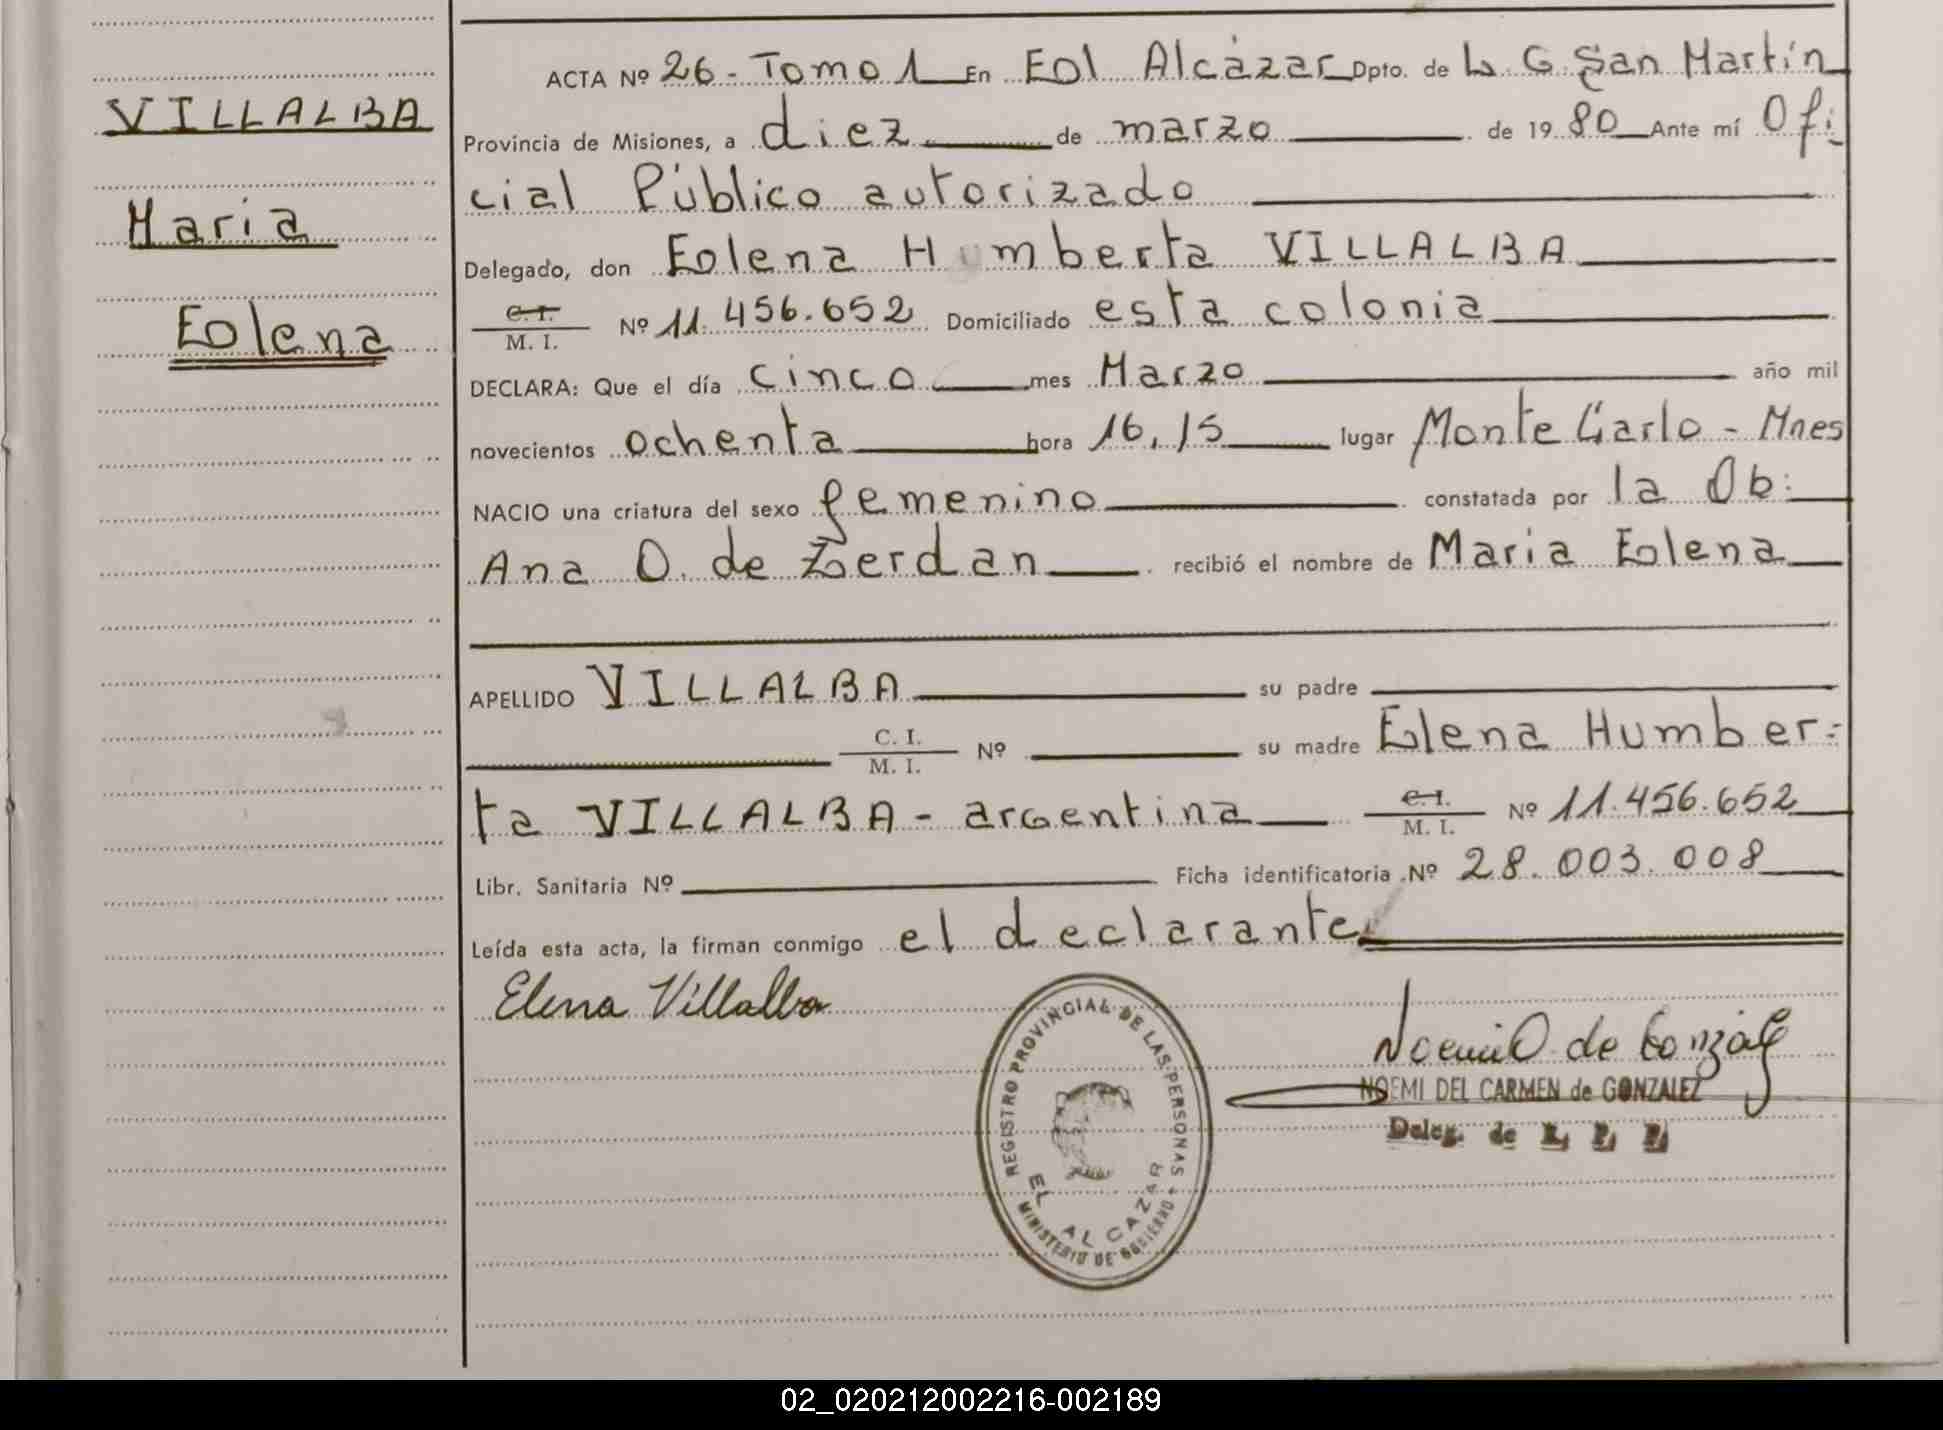 VILLALBA
Maria
Elena
ACTA Nº 26 - Tomo 1 En El Alcázar Dpto. de L. G. San Martín
Provincia de Misiones, a diez de marzo de 1980 Ante mí Ofi-
cial Público autorizado
Delegado, don Elena Humberta VILLALBA
C. I.
M. I. Nº 11.456.652 Domiciliado esta colonia
DECLARA: Que el día cinco mes Marzo año mil
novecientos ochenta hora 16,15 lugar Monte Carlo - Mnes
NACIO una criatura del sexo femenino constatada por la Ob:
Ana O. de Zerdan recibió el nombre de Maria Elena
APELLIDO VILLALBA su padre
C. I.
M. I. Nº su madre Elena Humber=
ta VILLALBA - argentina C. I.
M. I. Nº 11.456.652
Libr. Sanitaria Nº Ficha identificatoria Nº 28.003.008
Leída esta acta, la firman conmigo el declarante
Elena Villalba
REGISTRO PROVINCIAL DE LAS PERSONAS
EL ALCAZAR
MINISTERIO DE GOBIERNO
NOEMI DEL CARMEN de GONZALEZ
Deleg. de
02_020212002216-002189